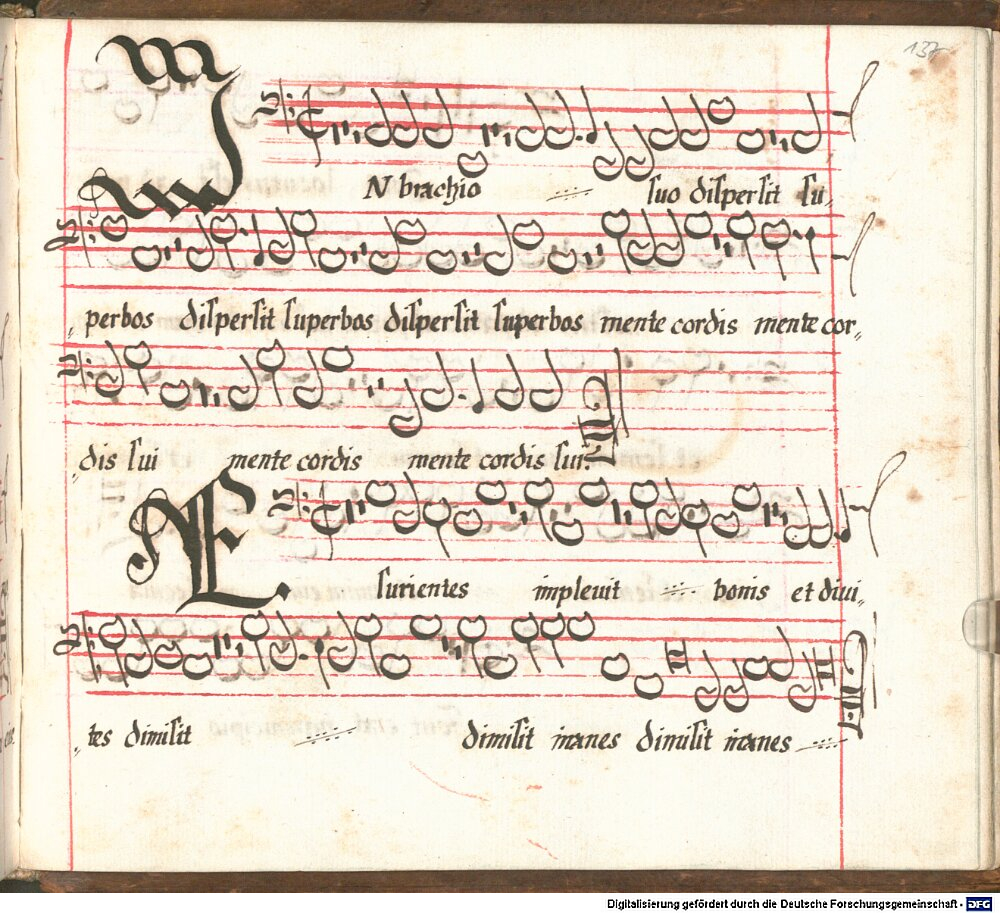 137
IN brachio suo dispersit su„
„perbos dispersit superbos dispersit superbos mente cordis mente cor„
„dis sui mente cordis mente cordis sui:
Esurientes impleuit bonis et diui„
„tes dimisit dimisit inanes dimisit inanes
Digitalisierung gefördert durch die Deutsche Forschungsgemeinschaft - DFG